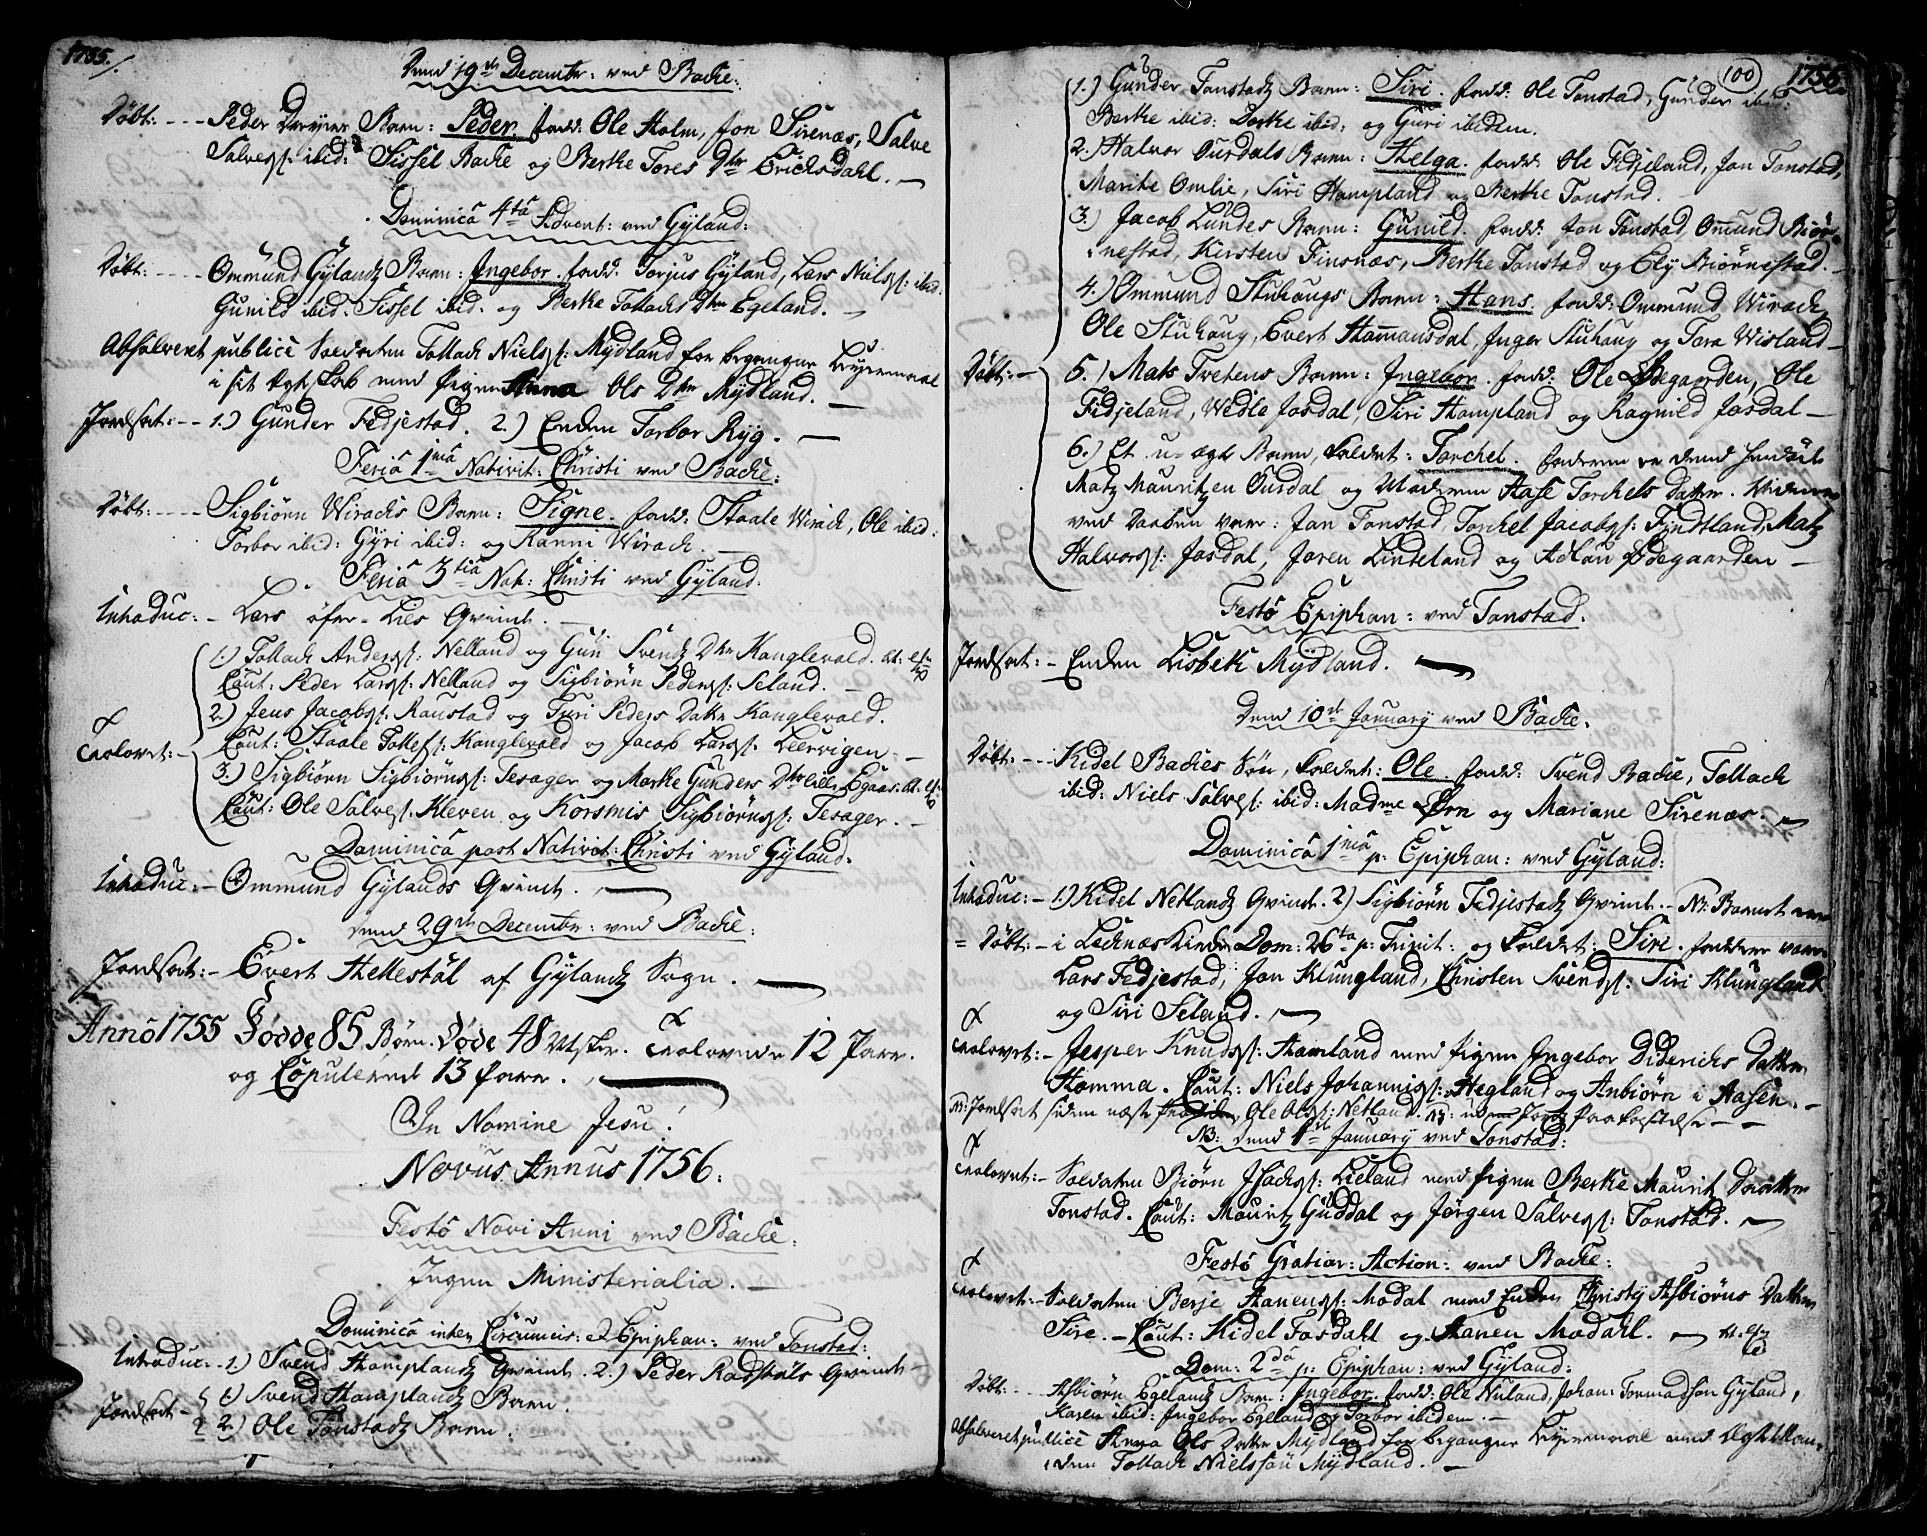 1755./
Dend 19de Decembr: ved Backe:
Döbt: - - - Peder Barn: Peder. fadd: Ole Holm, Jon Sirenæs, Salve
Salves: ibid: Sissel Backe og Berte Tores Dtr Erichsdahl. —
Dominica 4ta Advent: ved Gÿland:
Döbt: - - - Ommund Gÿlandz Barn: Ingebor. fadd: Torjus Gÿland, Lars Niels: ibid:
Gunild ibid: Sissel ibid: og Berte Tollachs Dtr Egeland. —
Absolveret publicè Soldaten Tollach Niels: Mÿdland for begangne Leyermaal
i sit med Pigen Anna Ols Dtr Mÿdland. —
Jordfæst: - - 1.) Gunder Fedjestad. 2.) Enden Torbor Rÿg. —
Feria 1ma Nativit: Christi ved Backe:
Döbt: - - - Sigbiörn Wirachs Barn: Signe. fadd: Staale Wirach, Ole ibid:
Torbor ibid: Gÿri ibid: og Ranni Wirach. —
Feria 3tia Nat: Christi ved Gÿland:
Introduc: - Lars Qvinde. —
1.) Tollach Anders: Nelland og Guri Svends Dtr Kanglevald.
Caut: Peder Lars: Nelland og Sigbiörn Peders: Seland. —
2.) Jens Jacobs: Raustad og Turi Peders Datter Kanglevald.
Trolovet: - Caut: Staale Tolles: Kanglevald og Jacob Lars: Leervigen —
3.) Sigbiörn Sigbiörns: Tesager og Marte Gunders Dtr Egaas.
Caut: Ole Salves: Kleven og Korsmis Sigbiörns: Tesager. —
Dominica post Nativit: Christi ved Gÿland:
Introduc: - Ommund Gÿlands Qvinde. —
Dend 29de Decembr: ved Backe:
Jordfæst: - Evert Hellestöl af Gÿlandz Sogn. —
Anno 1755 Födde 85 Börn. Döde 48 Trolovede 12 Parr.
og Copulered 13 Parr. —
In Nomine Jesu!
Novus Annus 1756:
Festo Novi Anni ved Backe:
Ingen Ministerialia. —
Dominica inter Circumcis: & Epiphan: ved Tonstad:
Introduc: - 1.) Svend Hamplandz Qvinde. 2.) Peder Rödstöls Qvinde —
Jordfæst - 1.) Svend Hamplandz Barn.
2.) Ole Tonstadz Barn.
100
1756.
1.) Gunder Tonstadz Barn: Siri. fadd: Ole Tonstad, Gunder ibid:
Berte ibid: Dorte ibid: og Guri ibidem.
2.) Halvor Ousdals Barn: Helga. fadd: Ole Fidjeland, Jon Tonstad,
Marite Omlie, Siri Hampland og Berte Tonstad.
3.) Jacob Lundes Barn: Gunild. fadd: Jon Tonstad, Omund Biör-
nestad, Kirsten Finsnæs, Berte Tonstad og Ely Biörnestad. —
4.) Ommund Stuhaugs Barn: Hans. fadd: Ommund Wirach,
Ole Stuhaug, Evert Hamansdal, Inger Stuhaug og Tora Wisland —
Döbt: - 5.) Mats Tvetens Barn: Ingebor. fadd: Ole Ödegaarden, Ole
Fidjeland, Wedle Josdal, Siri Hampland og Ragnild Josdal —
6.) Et u-ægte Barn, kaldet: Torchel. faderen er
Matz Mauritzen Ousdal og Moderen Aase Torchels Datter.
ved Daaben var: Jon Tonstad, Torchel Jacobs: Fÿndtland, Matz
Halvors: Josdal, Joren Lindeland og Adlau Ödegaarden —
Festo Epiphan: ved Tonstad.
Jordfæst: - Enden Lisbeth Mÿdland. —
Dend 10de Januarij ved Backe:
Döbt: - - - Kidel Backes Sön, kaldet: Ole. fadd: Svend Backe, Tollach
ibid: Niels Salves: ibid: Madme Örn og Mariane Sirenæs. —
Dominica 1ma p: Epiphan: ved Gÿland:
Introduc: - 1.) Kidel Netlandz Qvinde. 2.) Sigbiörn Fidjestadz Qvinde. — NB. Barnet
= Döbt: - i Lechnæs Kirke Dom: 26ta p: Trinit: og kaldet: Siri. fadderne vare
Lars Fedjestad, Jon Klungland, Christen Svends: Siri Klungland
og Siri Seland. —
Trolovet: - Jesper Knuds: Hamland med Pigen Ingebor Diderichs Datter
Homma. Caut: Niels Johannis: Hegland og Anbiörn i Aasen. —
NB: Jordfæst siden næste Ole Ols: Netland.
NB: Dend Januarij ved Tonstad:
Trolovet: - Soldaten Biörn Isachs: Lieland med Pigen Berthe Maurits Datter
Tonstad. Caut: Mauritz Guddal og Jörgen Salves: Tonstad. —
Festo Gratiar: Action: ved Backe:
Trolovet: - Soldaten Berje Hanens: Modal med Enden Christj Asbiörns Datter
Sire. — Caut: Kidel Fosdahl og Hanen Modahl. —
Dom: 2da p: Epiphan: ved Gÿland:
Döbt: - - Asbiörn Egelandz Barn: Ingebor. fadd: Ole Nuland, Johan Tormodsön Gÿland,
Karen ibid: Ingebor Egeland og Torbor ibidem. —
Absolveret publicè Anna Ols Datter Mÿdland for begangne Leyermaal med
Tollach Nielssön Mÿdland. —